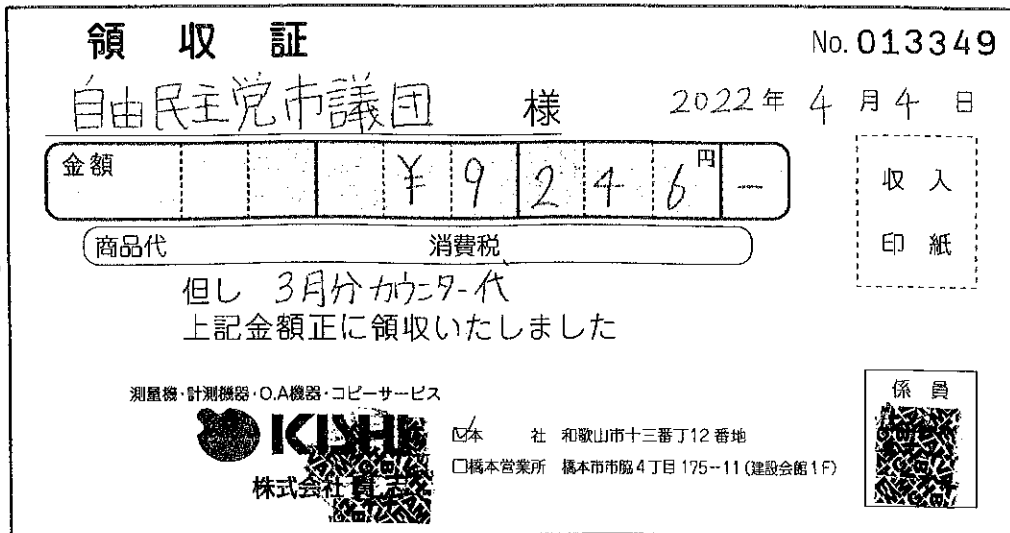 領収証
No. 013349
自由民主党市議団 様
2022年 4月 4日
金額 ¥9246円 -
収入
印紙
商品代 消費税
但し 3月分カウンター代
上記金額正に領収いたしました
測量機・計測機器・O.A機器・コピーサービス
KISHI
株式会社貴志
☑本社 和歌山市十三番丁12番地
□橋本営業所 橋本市市脇4丁目175--11(建設会館1F)
係員